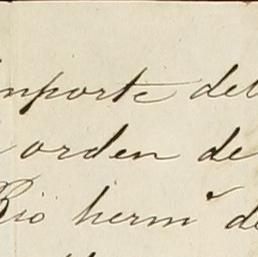 importe del
orden de
Rio herm^o de